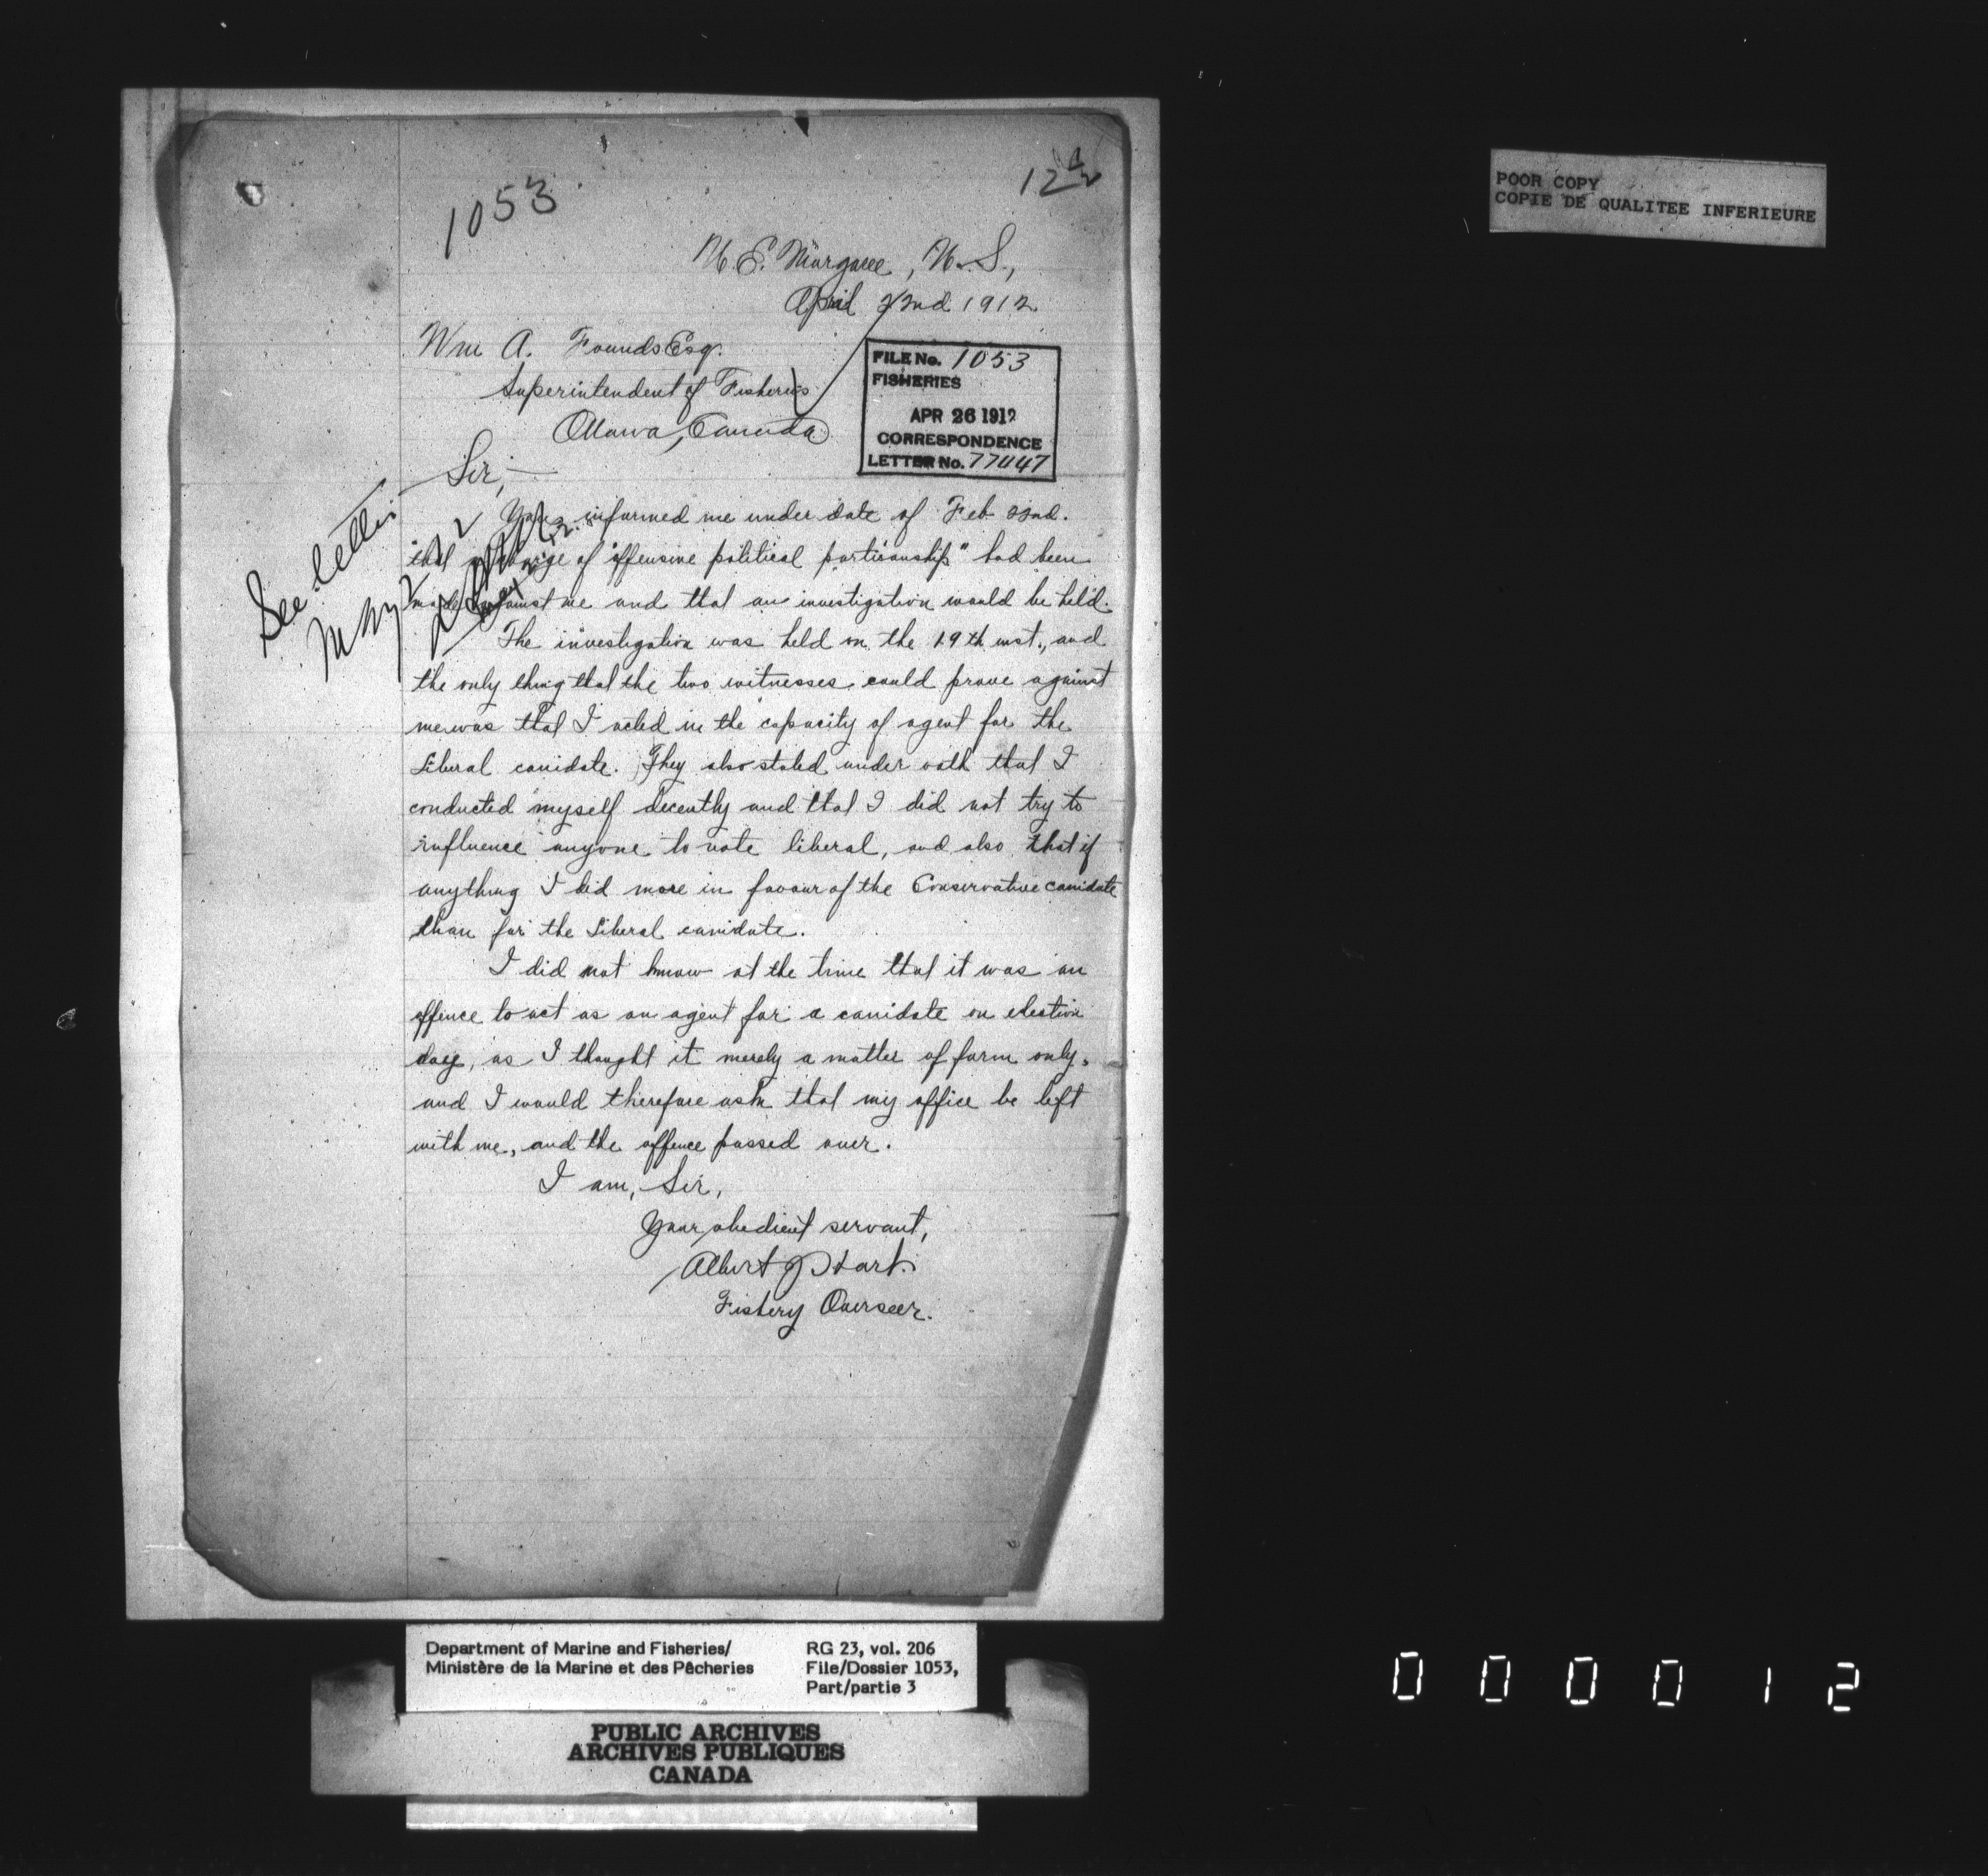 1053
12 1/2
N. E. Margaree, N. S.,
April 22nd 1912
Wm A. Founds Esq.
Superintendent of Fisheries
Ottawa, Canada
FILE No. 1053
FISHERIES
APR 26 1912
CORRESPONDENCE
LETTER No. 77447
Sir,—
See letter
You informed me under date of Feb 22nd.
that a charge of "offensive political partisanship" had been
made against me and that an investigation would be held.
The investigation was held on the 19th inst., and
the only thing that the two witnesses could prove against
me was that I acted in the capacity of agent for the
Liberal canidate. They also stated under oath that I
conducted myself decently and that I did not try to
influence anyone to vote liberal, and also that if
anything I did more in favour of the Conservative canidate
than for the Liberal canidate.
I did not know at the time that it was an
offence to act as an agent for a canidate on election
day, as I thought it merely a matter of form only,
and I would therefore ask that my office be left
with me, and the offence passed over.
I am, Sir,
Your obedient servant,
Albert J Hart.
Fishery Overseer.
POOR COPY
COPIE DE QUALITEE INFERIEURE
Department of Marine and Fisheries/
Ministère de la Marine et des Pêcheries
RG 23, vol. 206
File/Dossier 1053,
Part/partie 3
PUBLIC ARCHIVES
ARCHIVES PUBLIQUES
CANADA
000012